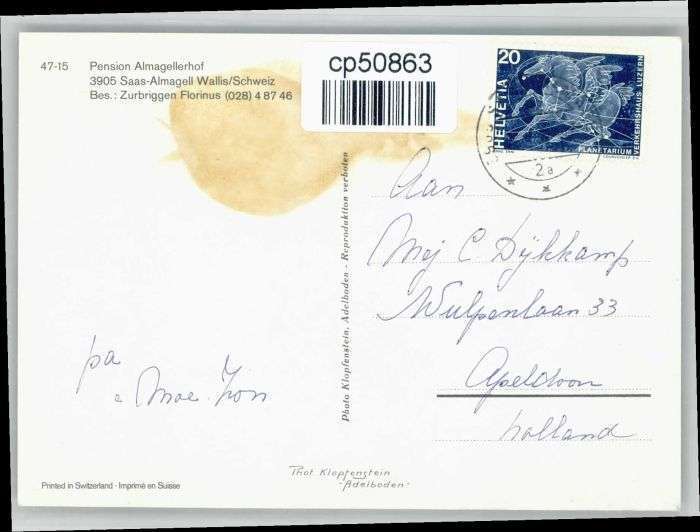 47-15 Pension Almagellerhof
3905 Saas-Almagell Wallis/Schweiz
Bes.: Zurbriggen Florinus (028) 4 87 46
cp50863
20
HELVETIA
PLANETARIUM
VERKEHRSHAUS LUZERN
2a
Aan
Mej C Dijkkamp
Wulpenlaan 33
Apeldoorn
Holland
pa
Moe.
Photo Klopfenstein, Adelboden - Reproduktion verboten
Phot Klopfenstein
-Adelboden-
Printed in Switzerland · Imprimé en Suisse